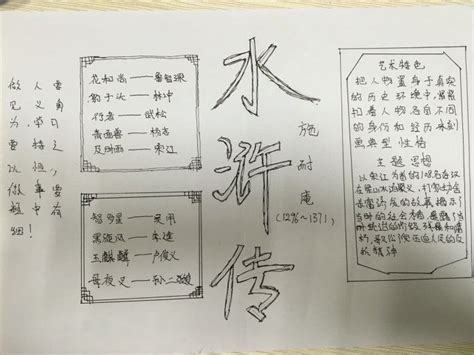 做人要
见义勇
为,学习
要持之
以恒,
做事要
粗中有
细!
花和尚——鲁智深
豹子头——林冲
行者——武松
青面兽——杨志
及时雨——宋江
智多星——吴用
黑旋风——李逵
玉麒麟——卢俊义
母夜叉——孙二娘
水浒传
施耐庵
(1296~1371)
艺术特色
把人物置身于真实
的历史环境中,紧紧
扣着人物各自不同
的身份和经历来刻
画典型性格
主题思想
以宋江为首的108名好汉
在梁山水泊聚义,打家劫舍
杀富济贫的故事揭示了
当时的社会矛盾,暴露了
当时统治阶级残暴和腐
朽,歌颂了被压迫人民的反
抗精神